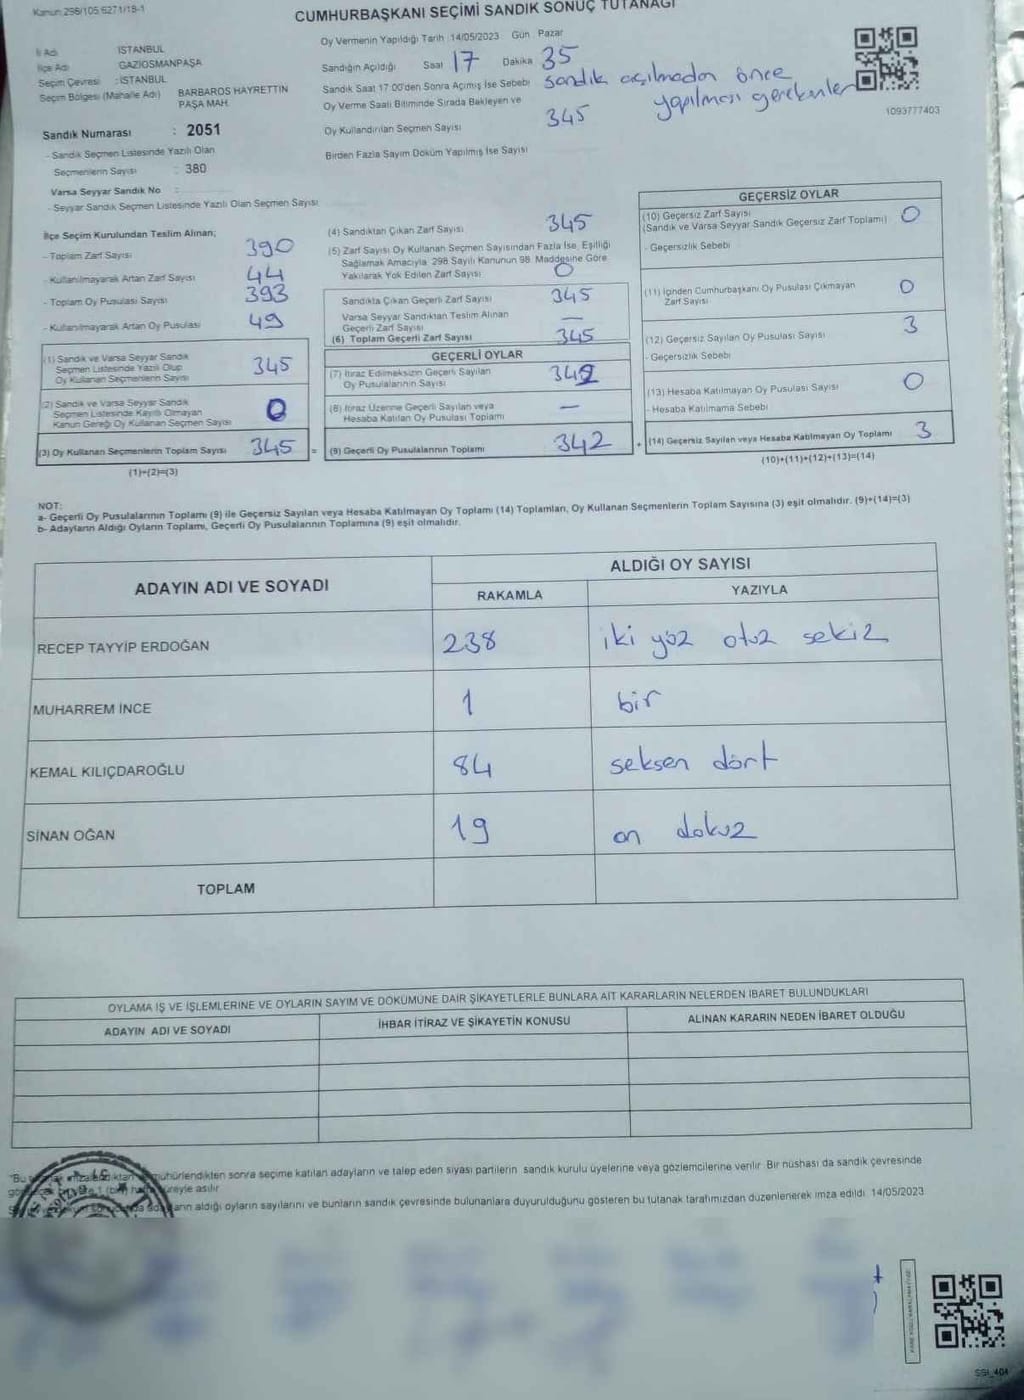 Kanun: 298/105 6271/18-1
CUMHURBAŞKANI SEÇİMİ SANDIK SONUÇ TUTANAĞI
İl Adı İSTANBUL
İlçe Adı GAZİOSMANPAŞA
Seçim Çevresi : İSTANBUL
Seçim Bölgesi (Mahalle Adı) BARBAROS HAYRETTİN PAŞA MAH.
Sandık Numarası : 2051
- Sandık Seçmen Listesinde Yazılı Olan
Seçmenlerin Sayısı : 380
Varsa Seyyar Sandık No :
- Seyyar Sandık Seçmen Listesinde Yazılı Olan Seçmen Sayısı
Oy Vermenin Yapıldığı Tarih :14/05/2023 Gün Pazar
Sandığın Açıldığı Saat 17 Dakika 35
Sandık Saat 17:00'den Sonra Açımış İse Sebebi sandık açılmadan önce
yapılması gerekenler
Oy Verme Saati Bitiminde Sırada Bekleyen ve
Oy Kullandırılan Seçmen Sayısı 345
Birden Fazla Sayım Döküm Yapılmış İse Sayısı
1093777403
İlçe Seçim Kurulundan Teslim Alınan;
- Toplam Zarf Sayısı 390
- Kullanılmayarak Artan Zarf Sayısı 44
- Toplam Oy Pusulası Sayısı 393
- Kullanılmayarak Artan Oy Pusulası 49
(1) Sandık ve Varsa Seyyar Sandık
Seçmen Listesinde Yazılı Olup
Oy Kullanan Seçmenlerin Sayısı 345
(2) Sandık ve Varsa Seyyar Sandık
Seçmen Listesinde Kayıtlı Olmayan
Kanun Gereği Oy Kullanan Seçmen Sayısı 0
(3) Oy Kullanan Seçmenlerin Toplam Sayısı 345 =
(1)+(2)=(3)
(4) Sandıktan Çıkan Zarf Sayısı 345
(5) Zarf Sayısı Oy Kullanan Seçmen Sayısından Fazla İse, Eşitliği
Sağlamak Amacıyla, 298 Sayılı Kanunun 98. Maddesine Göre
Yakılarak Yok Edilen Zarf Sayısı 0
Sandıkta Çıkan Geçerli Zarf Sayısı 345
Varsa Seyyar Sandıktan Teslim Alınan
Geçerli Zarf Sayısı —
(6) Toplam Geçerli Zarf Sayısı 345
GEÇERLİ OYLAR
(7) İtiraz Edilmeksizin Geçerli Sayılan
Oy Pusulalarının Sayısı 342
(8) İtiraz Üzerine Geçerli Sayılan veya
Hesaba Katılan Oy Pusulası Toplamı —
(9) Geçerli Oy Pusulalarının Toplamı 342 +
GEÇERSİZ OYLAR
(10) Geçersiz Zarf Sayısı
(Sandık ve Varsa Seyyar Sandık Geçersiz Zarf Toplamı) 0
- Geçersizlik Sebebi
(11) İçinden Cumhurbaşkanı Oy Pusulası Çıkmayan
Zarf Sayısı 0
(12) Geçersiz Sayılan Oy Pusulası Sayısı 3
- Geçersizlik Sebebi
(13) Hesaba Katılmayan Oy Pusulası Sayısı 0
- Hesaba Katılmama Sebebi
(14) Geçersiz Sayılan veya Hesaba Katılmayan Oy Toplamı 3
(10)+(11)+(12)+(13)=(14)
NOT:
a- Geçerli Oy Pusulalarının Toplamı (9) ile Geçersiz Sayılan veya Hesaba Katılmayan Oy Toplamı (14) Toplamları, Oy Kullanan Seçmenlerin Toplam Sayısına (3) eşit olmalıdır. (9)+(14)=(3)
b- Adayların Aldığı Oyların Toplamı, Geçerli Oy Pusulalarının Toplamına (9) eşit olmalıdır.
ADAYIN ADI VE SOYADI
ALDIĞI OY SAYISI
RAKAMLA YAZIYLA
RECEP TAYYİP ERDOĞAN 238 iki yüz otuz sekiz
MUHARREM İNCE 1 bir
KEMAL KILIÇDAROĞLU 84 seksen dört
SİNAN OĞAN 19 on dokuz
TOPLAM
OYLAMA İŞ VE İŞLEMLERİNE VE OYLARIN SAYIM VE DÖKÜMÜNE DAİR ŞİKAYETLERLE BUNLARA AİT KARARLARIN NELERDEN İBARET BULUNDUKLARI
ADAYIN ADI VE SOYADI İHBAR İTİRAZ VE ŞİKAYETİN KONUSU ALINAN KARARIN NEDEN İBARET OLDUĞU
"Bu mühürlendikten sonra seçime katılan adayların ve talep eden siyasi partilerin sandık kurulu üyelerine veya gözlemcilerine verilir. Bir nüshası da sandık çevresinde
süreyle asılır.
aldığı oyların sayılarını ve bunların sandık çevresinde bulunanlara duyurulduğunu gösteren bu tutanak tarafımızdan düzenlenerek imza edildi. 14/05/2023